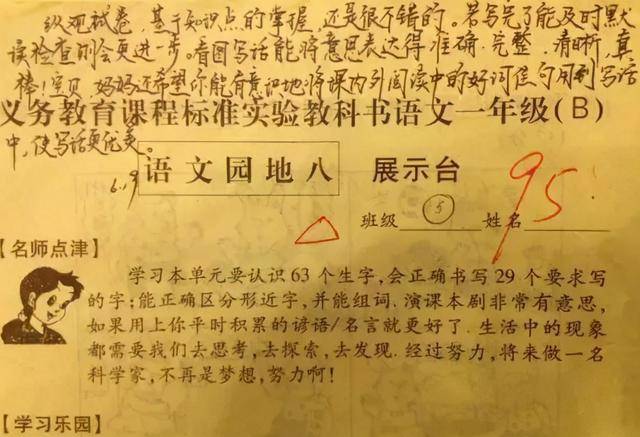 纵观试卷,基于知识点的掌握,还是很不错的。若写完了能及时默
读检查则会更进一步。看图写话能将意思表达得准确.完整.清晰,真
棒!宝贝,妈妈还希望你能有意识地将课内外阅读中的好词佳句用到写话
义务教育课程标准实验教科书语文一年级(B)
中,使写话更优美。
6.19
语文园地八 展示台
95
班级 5 姓名
【名师点津】
学习本单元要认识63个生字,会正确书写29个要求写
的字;能正确区分形近字,并能组词.演课本剧非常有意思,
如果用上你平时积累的谚语/名言就更好了.生活中的现象
都需要我们去思考,去探索,去发现.经过努力,将来做一名
科学家,不再是梦想,努力啊!
【学习乐园】